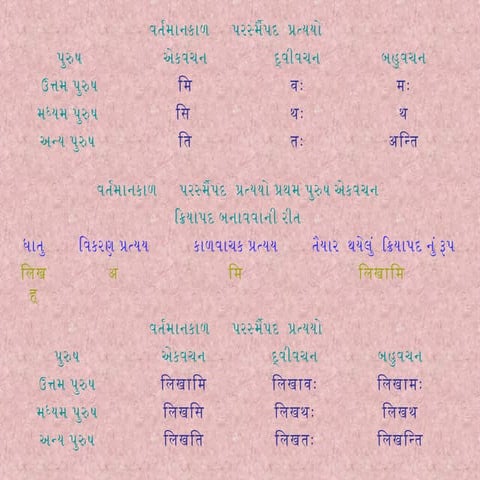 વર્તમાનકાળ પરસ્મૈપદ પ્રત્યયો
પુરુષ એકવચન દ્વીવચન બહુવચન
ઉત્તમ પુરુષ मि वः मः
મધ્યમ પુરુષ सि थः थ
અન્ય પુરુષ ति तः अन्ति
વર્તમાનકાળ પરસ્મૈપદ પ્રત્યયો પ્રથમ પુરુષ એકવચન
ક્રિયાપદ બનાવવાની રીત
ધાતુ વિકરણ પ્રત્યય કાળવાચક પ્રત્યય તૈયાર થયેલું ક્રિયાપદ નું રૂપ
लिख अ मि लिखामि
ह्
વર્તમાનકાળ પરસ્મૈપદ પ્રત્યયો
પુરુષ એકવચન દ્વીવચન બહુવચન
ઉત્તમ પુરુષ लिखामि लिखावः लिखामः
મધ્યમ પુરુષ लिखसि लिखथः लिखथ
અન્ય પુરુષ लिखति लिखतः लिखन्ति